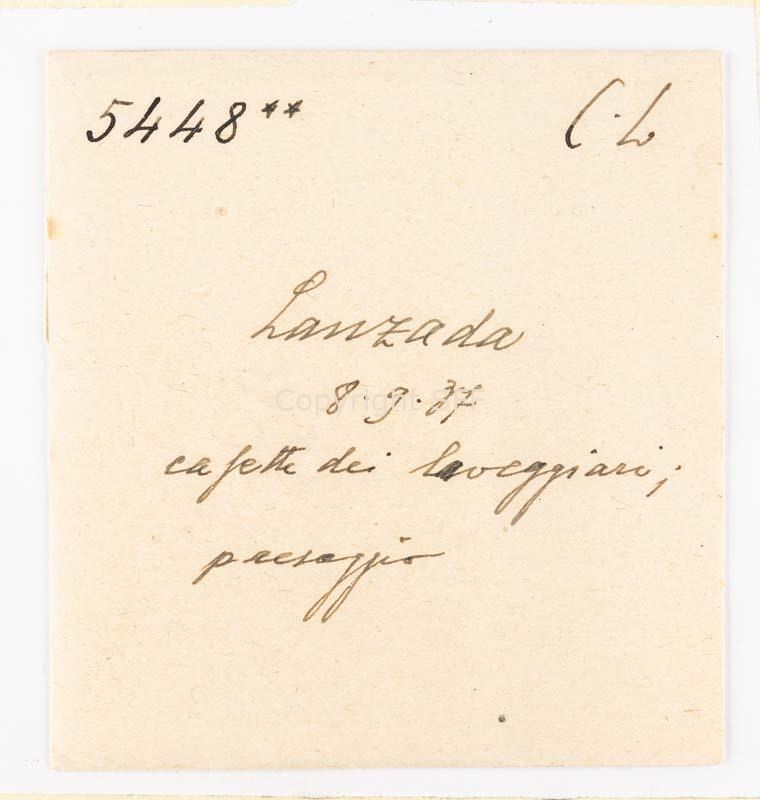 5448** C. L
Lanzada
8.9.37
Copyright SPF
casette dei laveggiari;
paesaggio